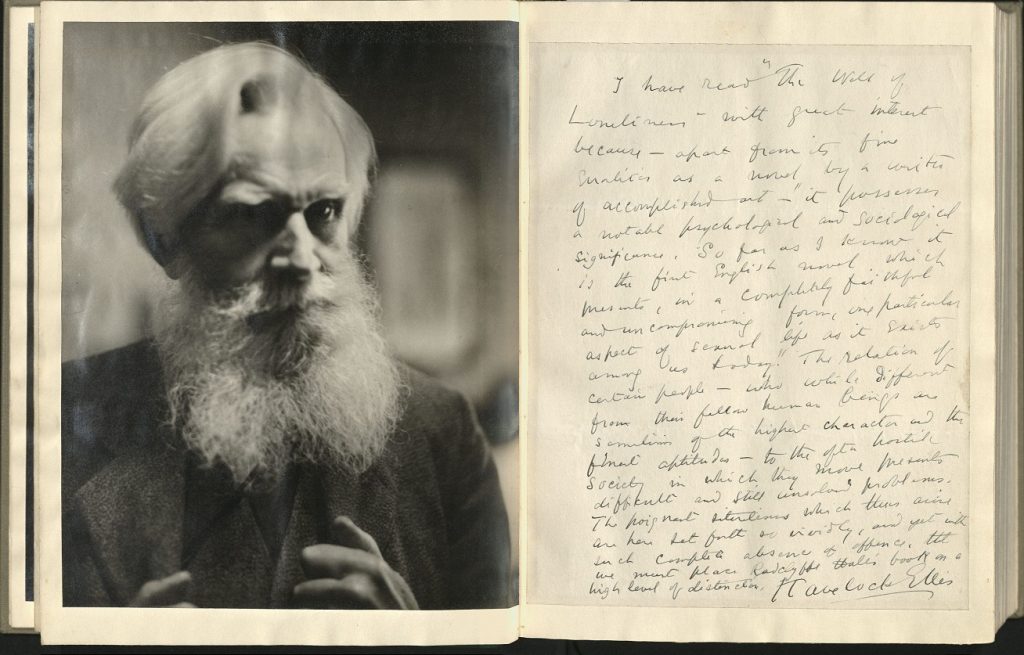 I have read "The Well of
Loneliness" with great interest
because – apart from its fine
qualities as a novel by a writer
of accomplished art – "it possesses
a notable psychological and sociological
significance. So far as I know, it
is the first English novel which
presents, in a completely faithful
and uncompromising form, one particular
aspect of sexual life as it exists
among us today." The relation of
certain people – who while different
from their fellow human beings are
sometimes of the highest character and the
finest aptitudes – to the often hostile
society in which they move presents
difficult and still unsolved problems.
The poignant situations which thus arise
are here set forth so vividly, and yet with
such complete absence of offence, that
we must place Radclyffe Hall's book on a
high level of distinction. Havelock Ellis